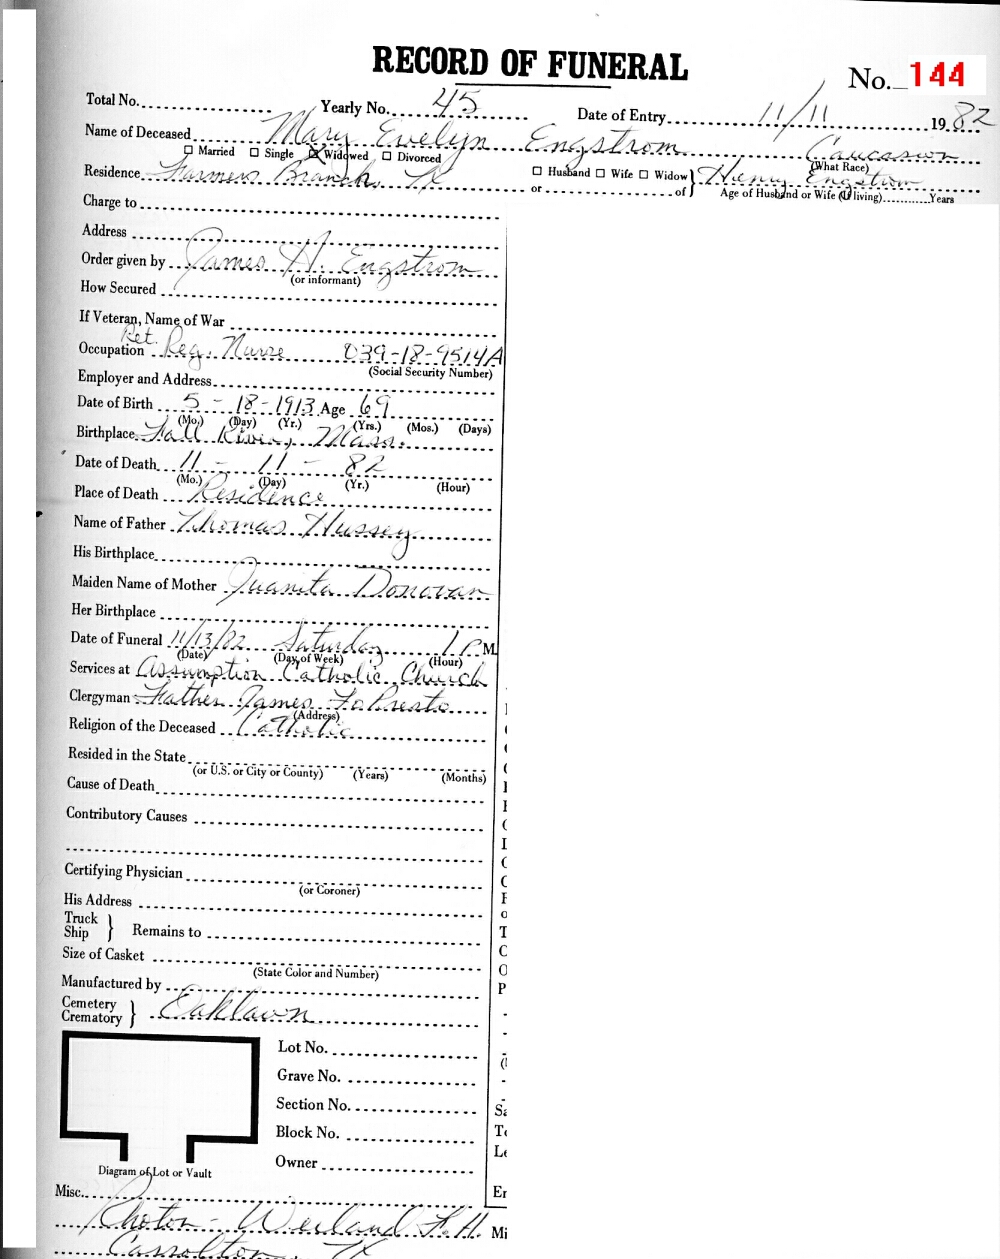 RECORD OF FUNERAL
No. 144
Total No. Yearly No. 45 Date of Entry 11/11 1982
Name of Deceased Mary Evelyn Engstrom Caucasion
☐ Married ☐ Single ☒ Widowed ☐ Divorced (What Race)
Residence Farmers Branch, TX ☐ Husband ☐ Wife ☐ Widow } Henry Engstrom
or of Age of Husband or Wife (if living) Years
Charge to
Address
Order given by James H. Engstrom
(or informant)
How Secured
If Veteran, Name of War
Ret.
Occupation Reg. Nurse 039-18-9514A
(Social Security Number)
Employer and Address
Date of Birth 5 - 18 - 1913 Age 69
(Mo.) (Day) (Yr.) (Yrs.) (Mos.) (Days)
Birthplace Fall River, Mass.
Date of Death 11 - 11 - 82
(Mo.) (Day) (Yr.) (Hour)
Place of Death Residence
Name of Father Thomas Hussey
His Birthplace
Maiden Name of Mother Juanita Donovan
Her Birthplace
Date of Funeral 11/13/82 Saturday 1 P M.
(Date) (Day of Week) (Hour)
Services at Assumption Catholic Church
Clergyman Father James
(Address)
Religion of the Deceased Catholic
Resided in the State
(or U.S. or City or County) (Years) (Months)
Cause of Death
Contributory Causes
Certifying Physician
(or Coroner)
His Address
Truck
Ship } Remains to
Size of Casket
(State Color and Number)
Manufactured by
Cemetery
Crematory } Oaklawn
Lot No.
Grave No.
Section No.
Block No.
Owner
Diagram of Lot or Vault
Misc.
Rhoton-Weiland F.H.
Carrolton, TX